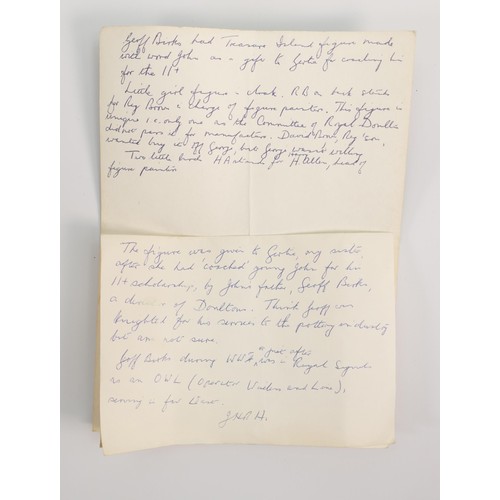 Geoff Burke had Treasure Island figure made
with word John as a gift to Gertie for coaching him
for the 11+
Little girl figure - cloak. RB on back stands
for Reg Brown in charge of figure painters. This figure is
unique i.e. only one as the Committee of Royal Doulton
did not pass it for manufacture. David Brown, Reg's son,
wanted buy it off George, but George wasn't willing
Two little birds HA stands for Harry Allen, head of
figure painters
The figure was given to Gertie, my sister,
after she had 'coached' young John for his
11+ scholarship, by John's father, Geoff Burke,
a of Doultons. Think Geoff was
knighted for his services to the pottery industry
but am not sure.
Geoff Burke during WW2, & just after was in Royal Signals
as an OWL (Operator Wireless and Line),
serving in far